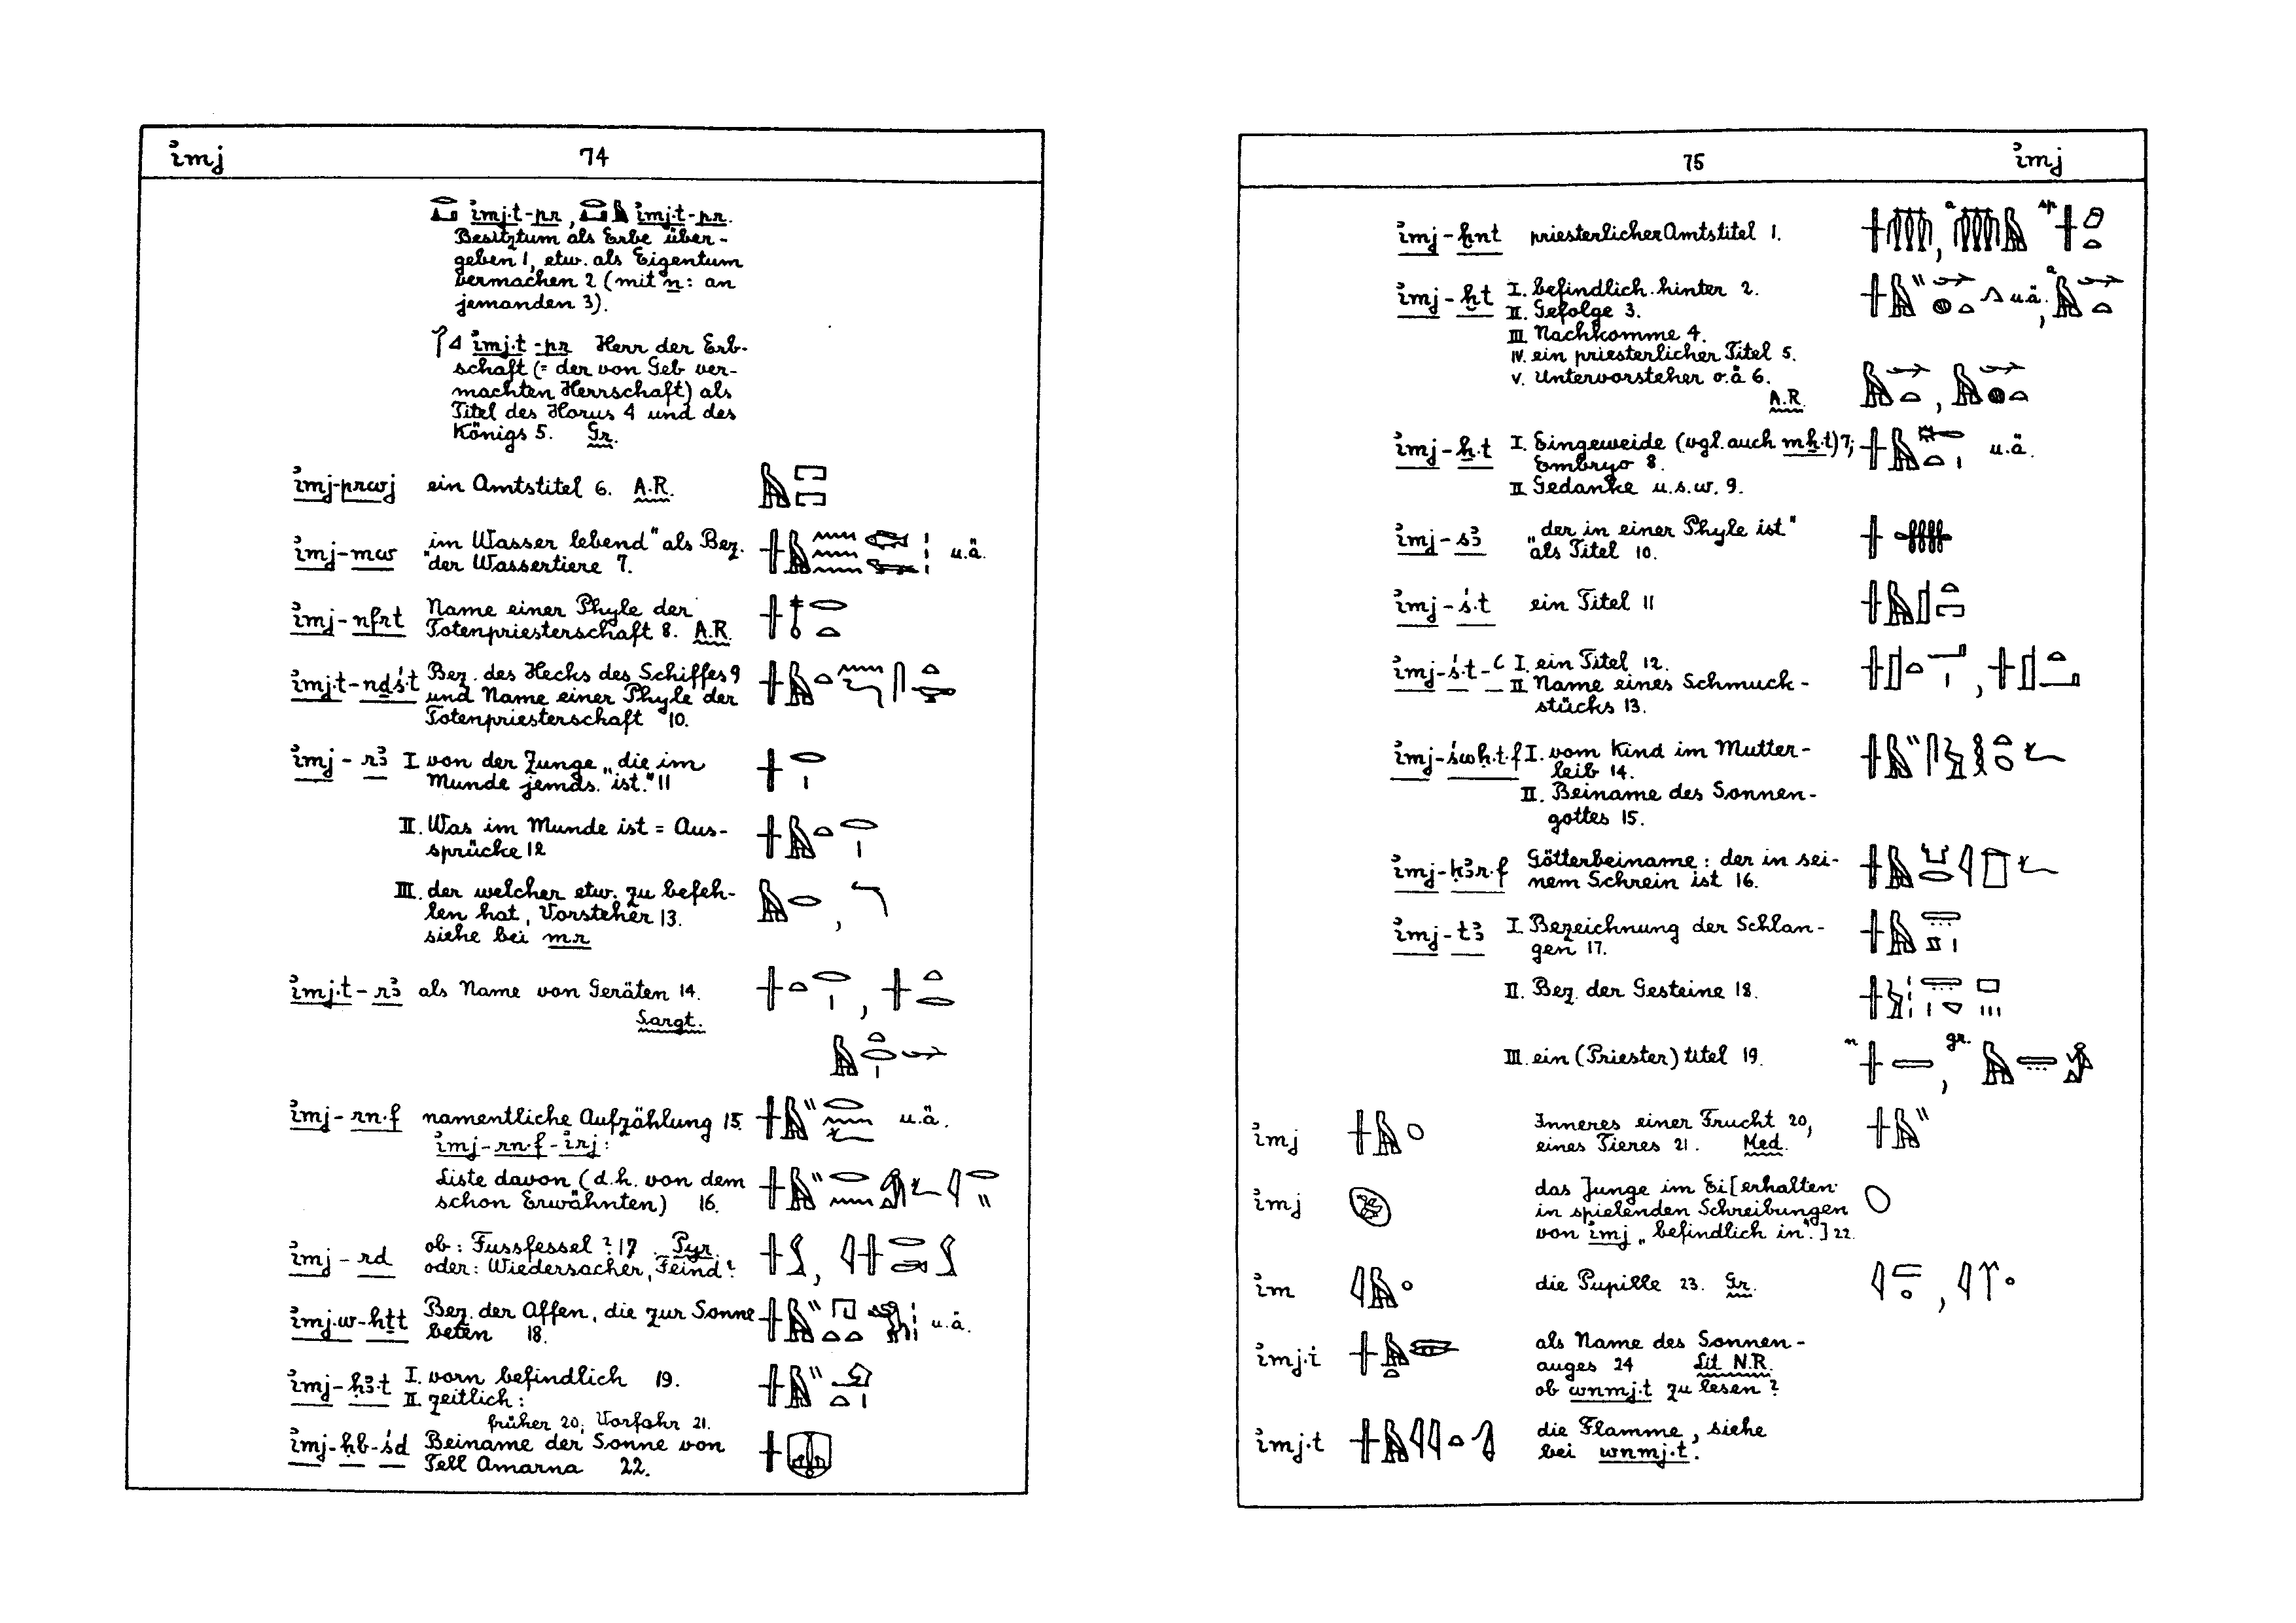 imj 74
imj·t-pr, imj·t-pr.
Besitztum als Erbe über-
geben 1, etw. als Eigentum
vermachen 2 (mit n: an
jemanden 3).
imj·t-pr Herr der Erb-
schaft (= der von Geb ver-
machten Herrschaft) als
Titel des Horus 4 und des
Königs 5. Gr.
imj-prwj ein Amtstitel 6. A.R.
imj-mw „im Wasser lebend" als Bez.
der Wassertiere 7. u.ä.
imj-nfrt Name einer Phyle der
Totenpriesterschaft 8. A.R.
imj·t-nḏś·t Bez. des Hecks des Schiffes 9
und Name einer Phyle der
Totenpriesterschaft 10.
imj-rꜣ I von der Zunge „die im
Munde jemds. ist." 11
II. Was im Munde ist = Aus-
sprüche 12
III. der welcher etw. zu befeh-
len hat, Vorsteher 13.
siehe bei mr
imj·t-rꜣ als Name von Geräten 14.
Sargt.
imj-rn·f namentliche Aufzählung 15. u.ä.
imj-rn·f-irj:
Liste davon (d.h. von dem
schon Erwähnten) 16.
imj-rd ob: Fussfessel? 17. Pyr.
oder: Wiedersacher, Feind?
imj·w-hṯt Bez. der Affen, die zur Sonne
beten 18. u.ä.
imj-ḥꜣ·t I. vorn befindlich 19.
II. zeitlich:
früher 20; Vorfahr 21.
imj-ḥb-śd Beiname der Sonne von
Tell Amarna 22.
75 imj
imj-ḫnt priesterlicher Amtstitel 1. a sp
imj-ḫt I. befindlich hinter 2. u.ä. a
II. Gefolge 3.
III Nachkomme 4.
IV. ein priesterlicher Titel 5.
V. Untervorsteher o.ä 6.
A.R.
imj-ẖ·t I. Eingeweide (vgl. auch mẖ·t) 7; u.ä.
Embryo 8.
II Gedanke u.s.w. 9.
imj-sꜣ „der in einer Phyle ist"
als Titel 10.
imj-ś·t ein Titel 11
imj-ś·t-ꜥ I. ein Titel 12.
II Name eines Schmuck-
stücks 13.
imj-świḥ·t·f I. vom Kind im Mutter-
leib 14.
II. Beiname des Sonnen-
gottes 15.
imj-kꜣr·f Götterbeiname: der in sei-
nem Schrein ist 16.
imj-tꜣ I. Bezeichnung der Schlan-
gen 17.
II. Bez. der Gesteine 18.
III. ein (Priester)titel 19. n gr.
imj Inneres einer Frucht 20,
eines Tieres 21. Med.
imj das Junge im Ei [erhalten
in spielenden Schreibungen
von imj „befindlich in".] 22.
im die Pupille 23. Gr.
imj·t als Name des Sonnen-
auges 24 Lit N.R.
ob wnmj·t zu lesen?
imj·t die Flamme, siehe
bei wnmj·t.